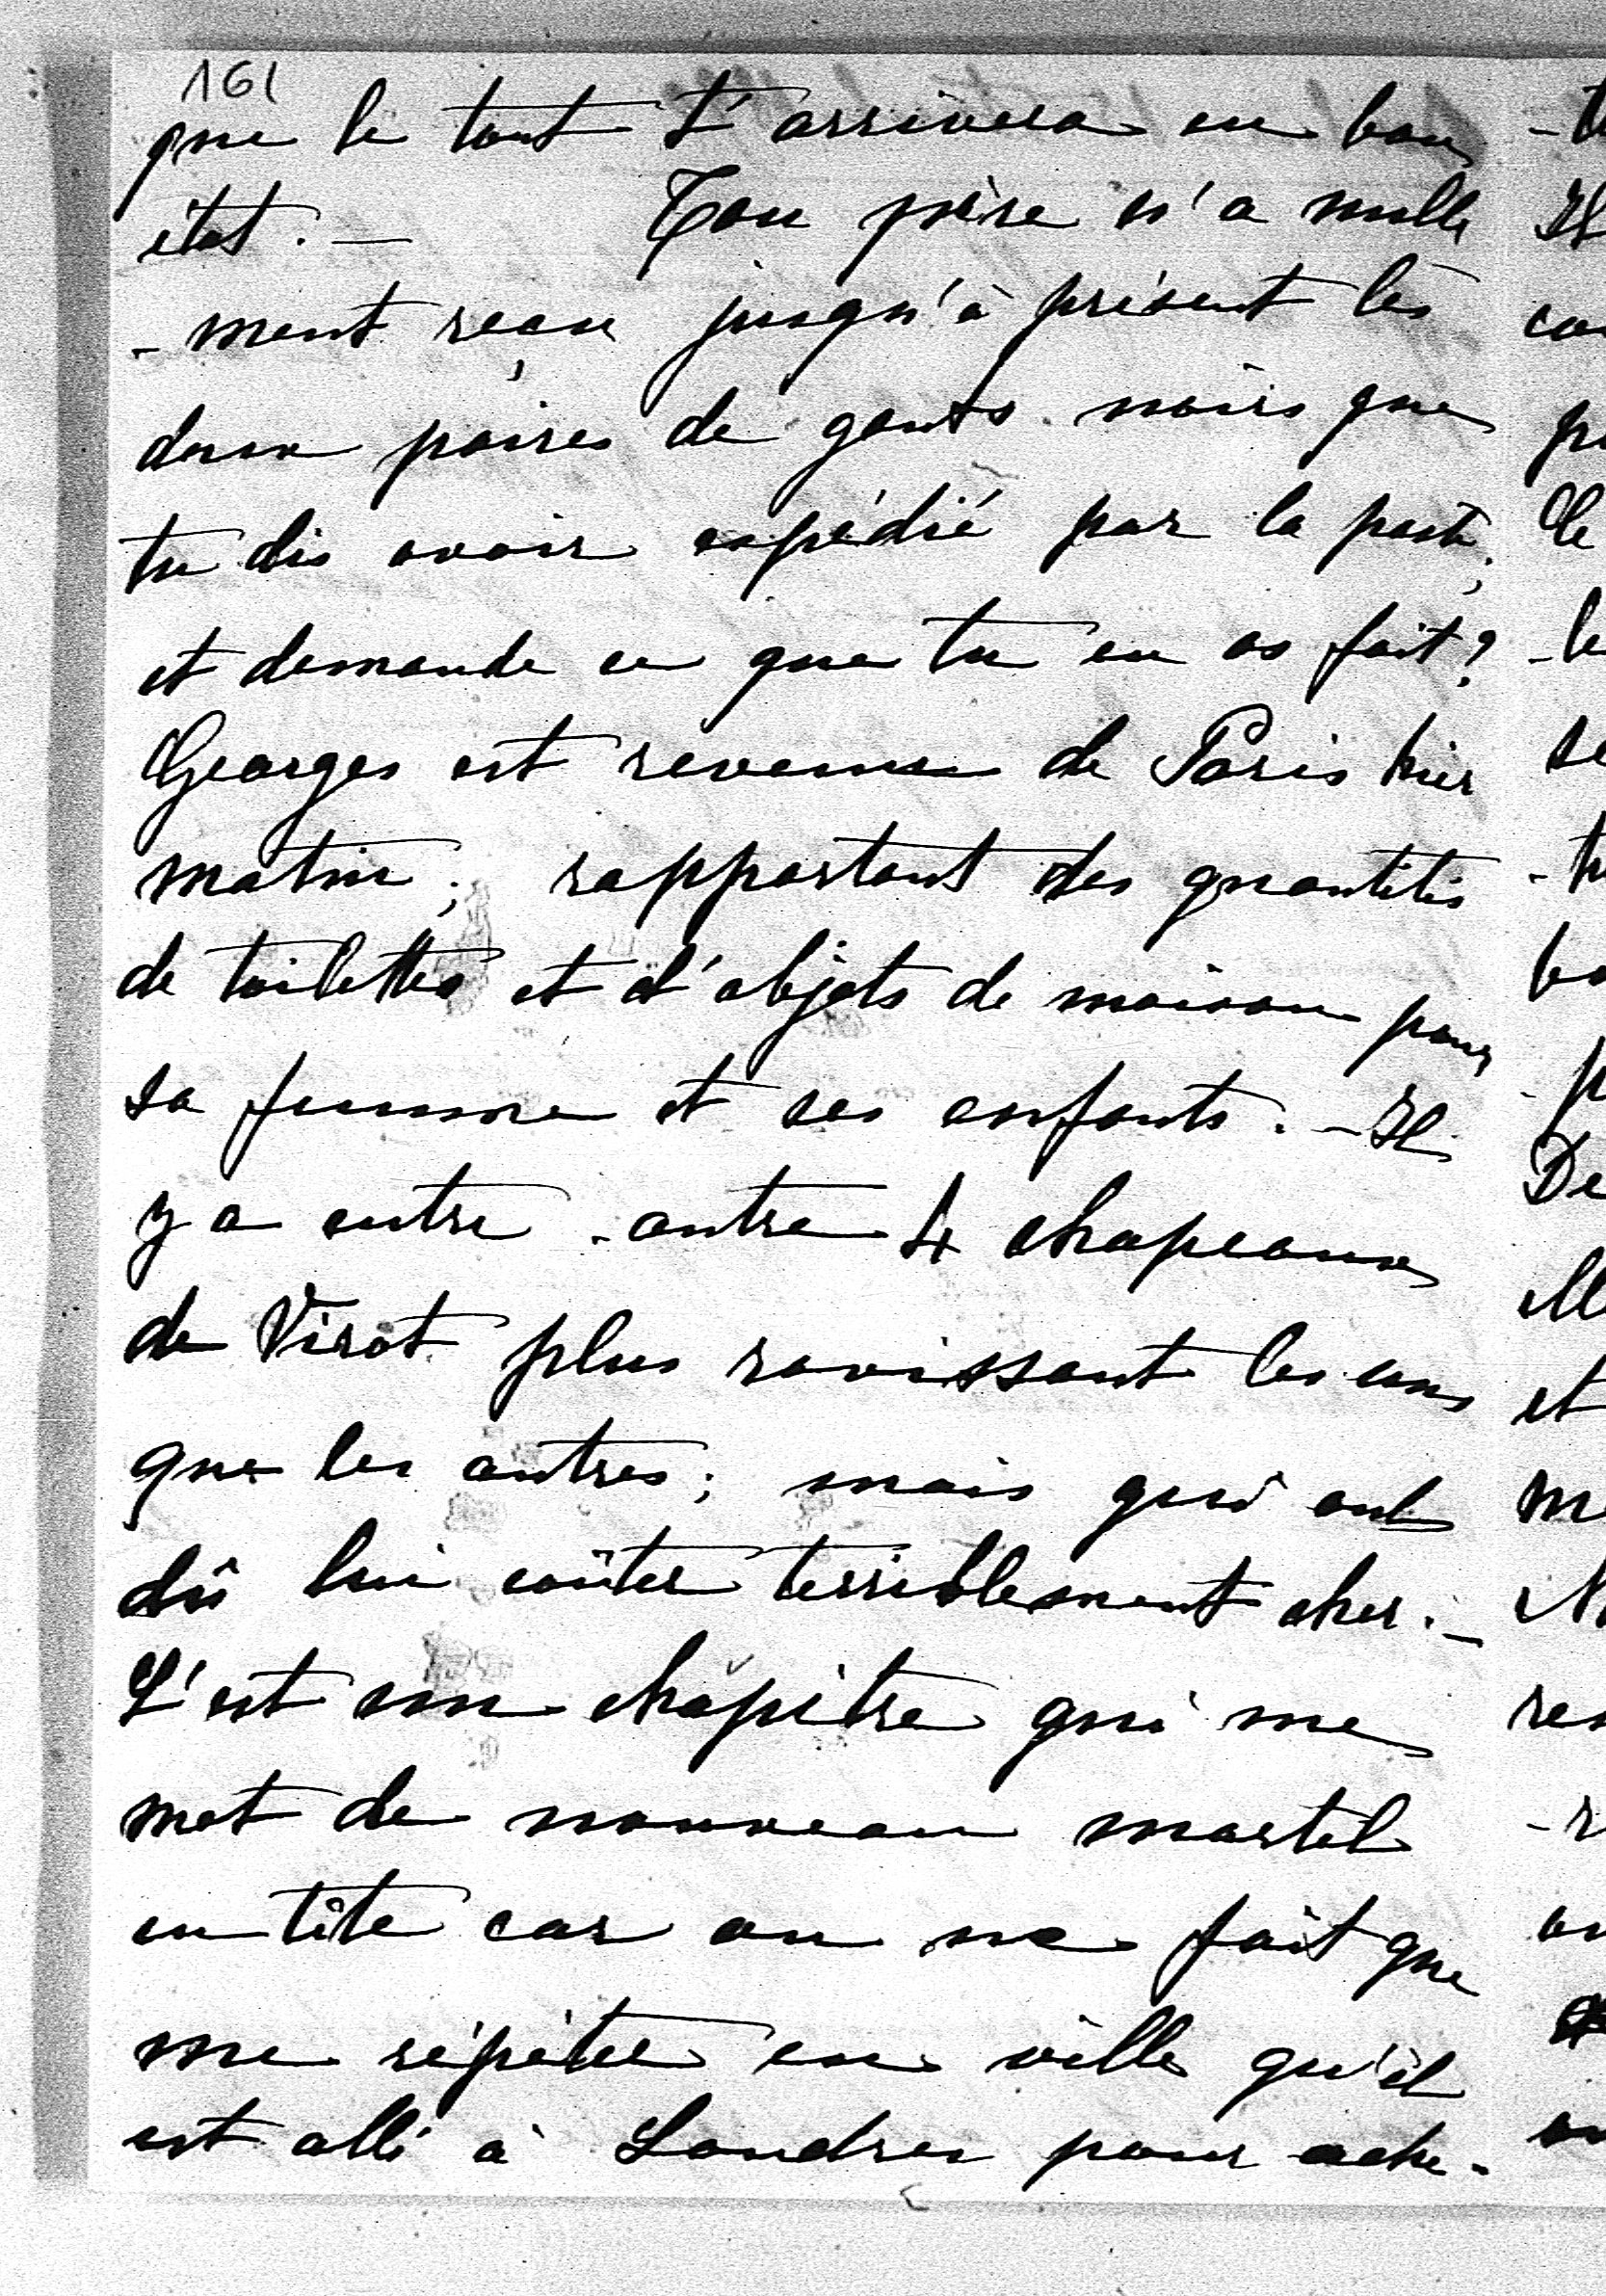 161
que le tout t'arrivera en bon
état. — Ton père n'a nulle
- ment reçu jusqu'à présent les
deux paires de gants noirs que
tu dis avoir expédié par la poste;
et demande ce que tu en as fait?
Georges est revenu de Paris hier
matin; rapportant des quantités
de toilettes et d'objets de maison pour
sa femme et ses enfants. - Il
y a entre - autre 4 chapeaux
de Virot plus ravissant les uns
que les autres; mais qui ont
dû lui coûter terriblement cher. -
C'est un chapitre qui me
met de nouveau martel
en tête car on ne fait que
me répéter en ville qu'il
est allé à Londres pour ache-